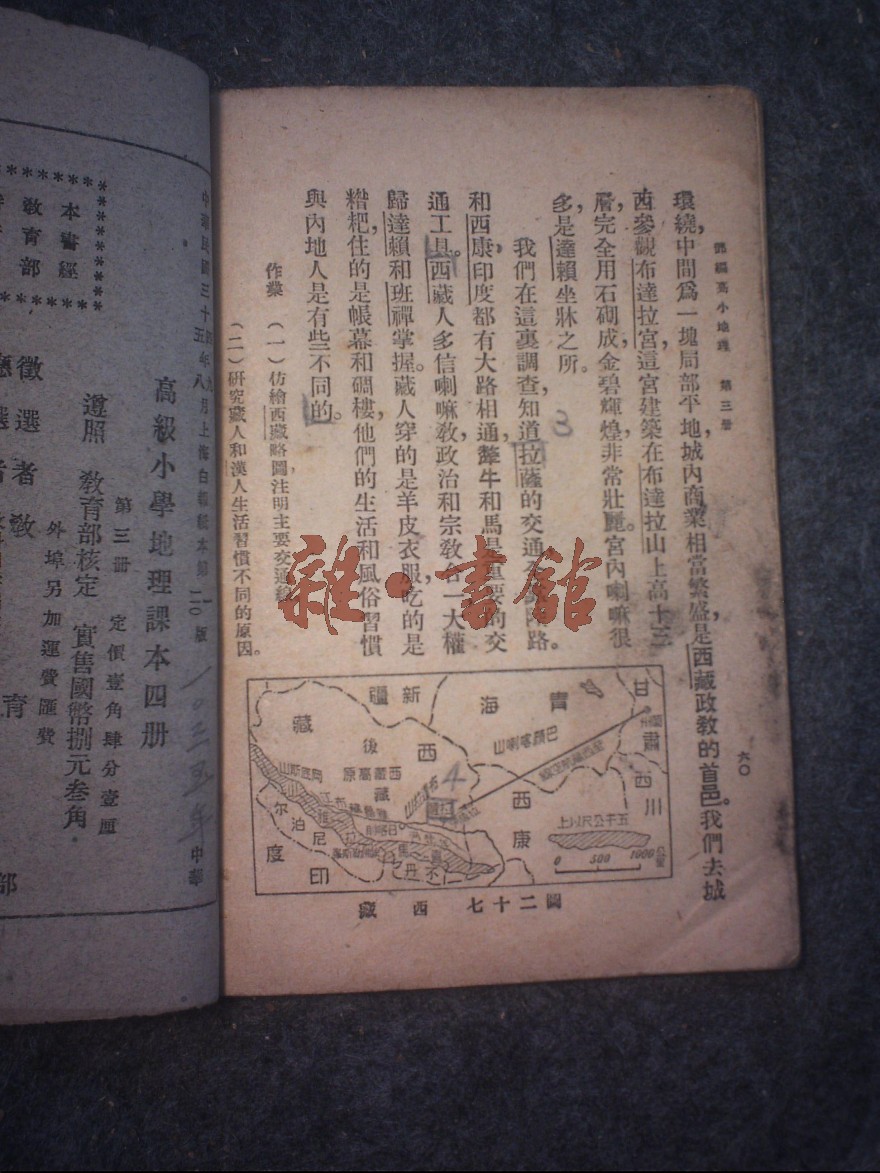 高小地理 第三册
六〇
環繞，中間爲一塊局部平地，城內商業相當繁盛，是西藏政教的首邑。我們去城
西參觀布達拉宮，這宮建築在布達拉山上，高十三
層，完全用石砌成，金碧輝煌，非常壯麗。宮內喇嘛很
多，是達賴坐牀之所。
我們在這裏調查，知道拉薩的交通
路。
和西康，印度都有大路相通，犛牛和馬是重要的交
通工具。西藏人多信喇嘛教，政治和宗教合一，大權
歸達賴和班禪掌握。藏人穿的是羊皮衣服，吃的是
糌粑，住的是帳幕和碉樓，他們的生活和風俗習慣
與內地人是有些不同的。
作業 （一）仿繪西藏略圖，注明主要交通線
（二）研究藏人和漢人生活習慣不同的原因。
新疆
青海
甘肅
西藏
後藏
西藏高原
巴顏喀喇山
西康
四川
五千公尺以上
0 500 1000
尼泊尔
不丹
印度
圖二十七 西藏
3
4
雜·書館
高級小學地理課本四册
第三册 定價壹角肆分壹厘
遵照 教育部核定 實售國幣捌元叁角
外埠另加運費匯費
本書經
教育部
徵選者教
育
部
中華